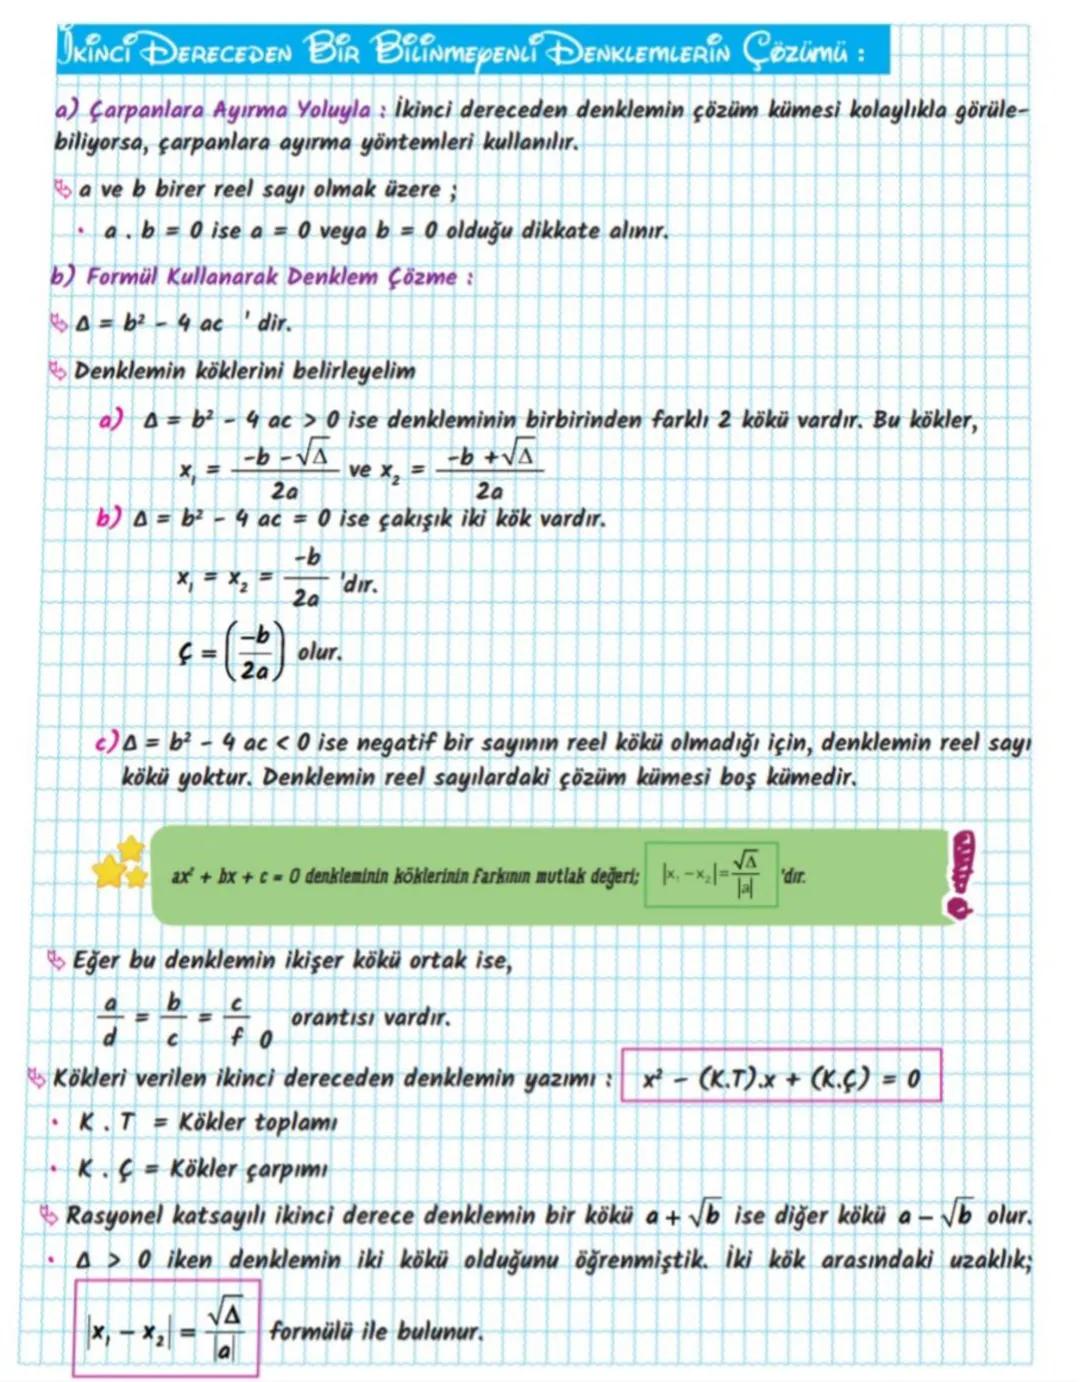 İkinci Dereceden Bir Bilinmeyenli Denklemlerin Çözümü :
a) Çarpanlara Ayırma Yoluyla : İkinci dereceden denklemin çözüm kümesi kolaylıkla görüle-
biliyorsa, çarpanlara ayırma yöntemleri kullanılır.
a ve b birer reel sayı olmak üzere ;
• a . b = 0 ise a = 0 veya b = 0 olduğu dikkate alınır.
b) Formül Kullanarak Denklem Çözme :
Δ = b² - 4 ac ' dir.
Denklemin köklerini belirleyelim
a) Δ = b² - 4 ac > 0 ise denkleminin birbirinden farklı 2 kökü vardır. Bu kökler,
x₁ = (-b - √Δ)/2a ve x₂ = (-b + √Δ)/2a
b) Δ = b² - 4 ac = 0 ise çakışık iki kök vardır.
x₁ = x₂ = -b/2a 'dır.
Ç = (-b/2a) olur.
c) Δ = b² - 4 ac < 0 ise negatif bir sayının reel kökü olmadığı için, denklemin reel sayı
kökü yoktur. Denklemin reel sayılardaki çözüm kümesi boş kümedir.
ax² + bx + c = 0 denkleminin köklerinin farkının mutlak değeri; |x₁ - x₂| = √Δ/|a| 'dır.
Eğer bu denklemin ikişer kökü ortak ise,
a/d = b/c = c/f 0 orantısı vardır.
Kökleri verilen ikinci dereceden denklemin yazımı : x² - (K.T).x + (K.Ç) = 0
• K . T = Kökler toplamı
• K . Ç = Kökler çarpımı
Rasyonel katsayılı ikinci derece denklemin bir kökü a + √b ise diğer kökü a - √b olur.
• Δ > 0 iken denklemin iki kökü olduğunu öğrenmiştik. İki kök arasındaki uzaklık;
|x₁ - x₂| = √Δ/|a| formülü ile bulunur.